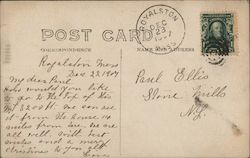 POST CARD
CORRESPONDENCE
NAME AND ADDRESS
ROYALSTON
DEC
23
Royalston Mass
Dec 22, 1907
My dear Paul
How would you like
to go to the top of this
Mt 3200 ft. We can see
it from the house 40
miles from here. We are
all well. With best
wishes and a merry
Christmas to you all
Paul Ellis
Stone Mills
N.Y.